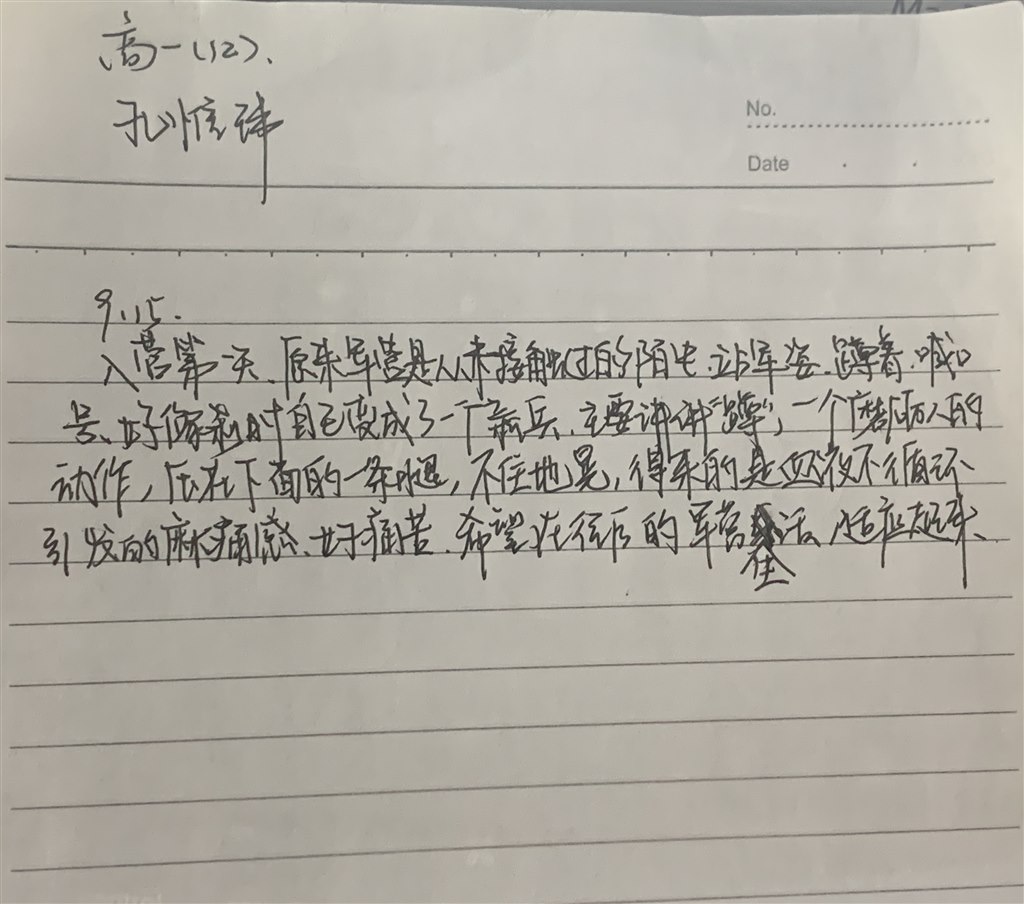 高一(12).
孔惟玮
No.
Date
9.15.
入营第一天、原来军营是从未接触过的陌生、站军姿、蹲着、喊口
号、好像刹时自己变成了一个新兵、主要讲讲"蹲"，一个磨砺人的
动作，压在下面的一条腿，不住地晃，得来的是血液不循环
引发的麻痛感、好痛苦、希望在往后的军营生活、适应起来、